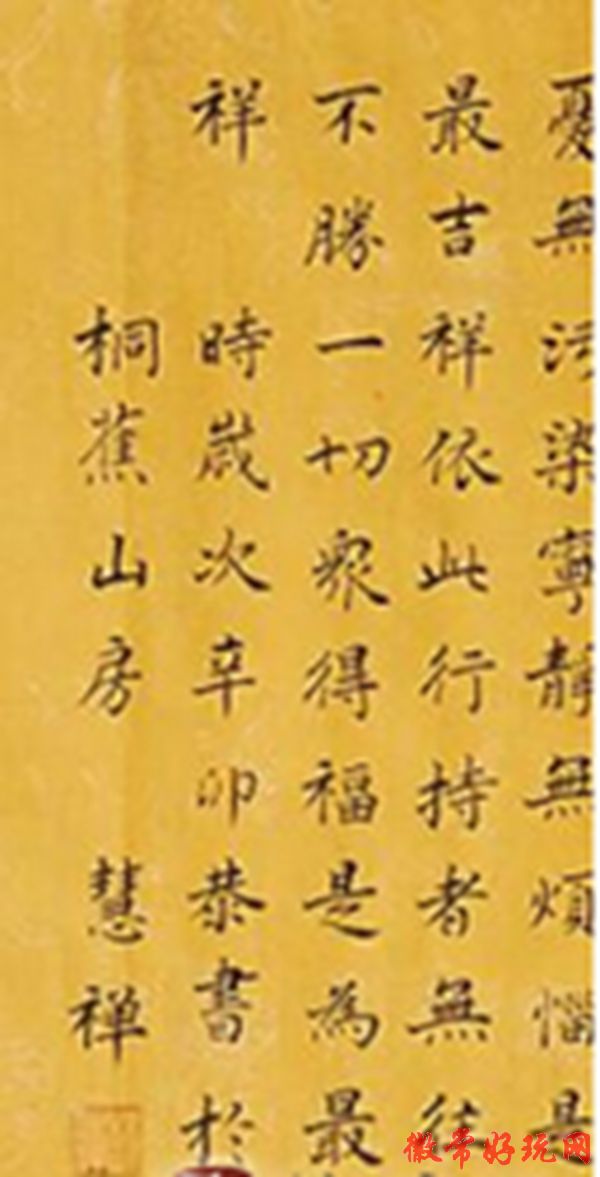 憂無污染寧靜無煩惱是
最吉祥依此行持者無往
不勝一切眾得福是為最
祥 時歲次辛卯恭書於
桐蕉山房 慧禅
徽常好玩网